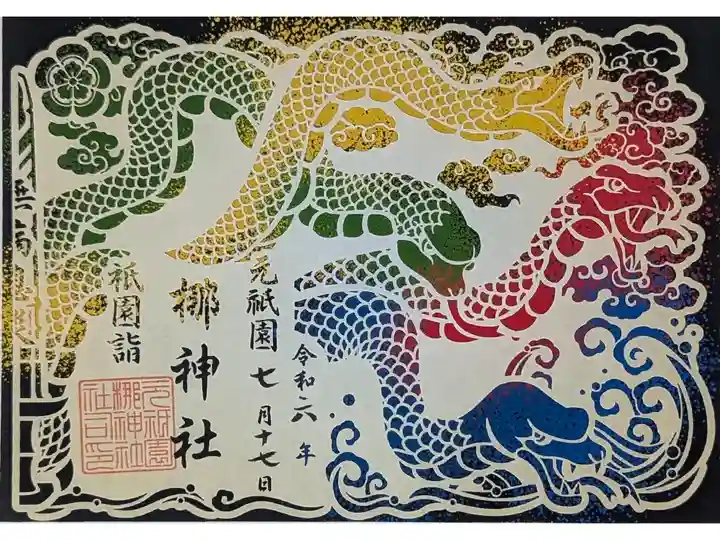 元祇園
令和六年
七月十七日
梛神社
祇園詣
元祇園
梛神社
社司印